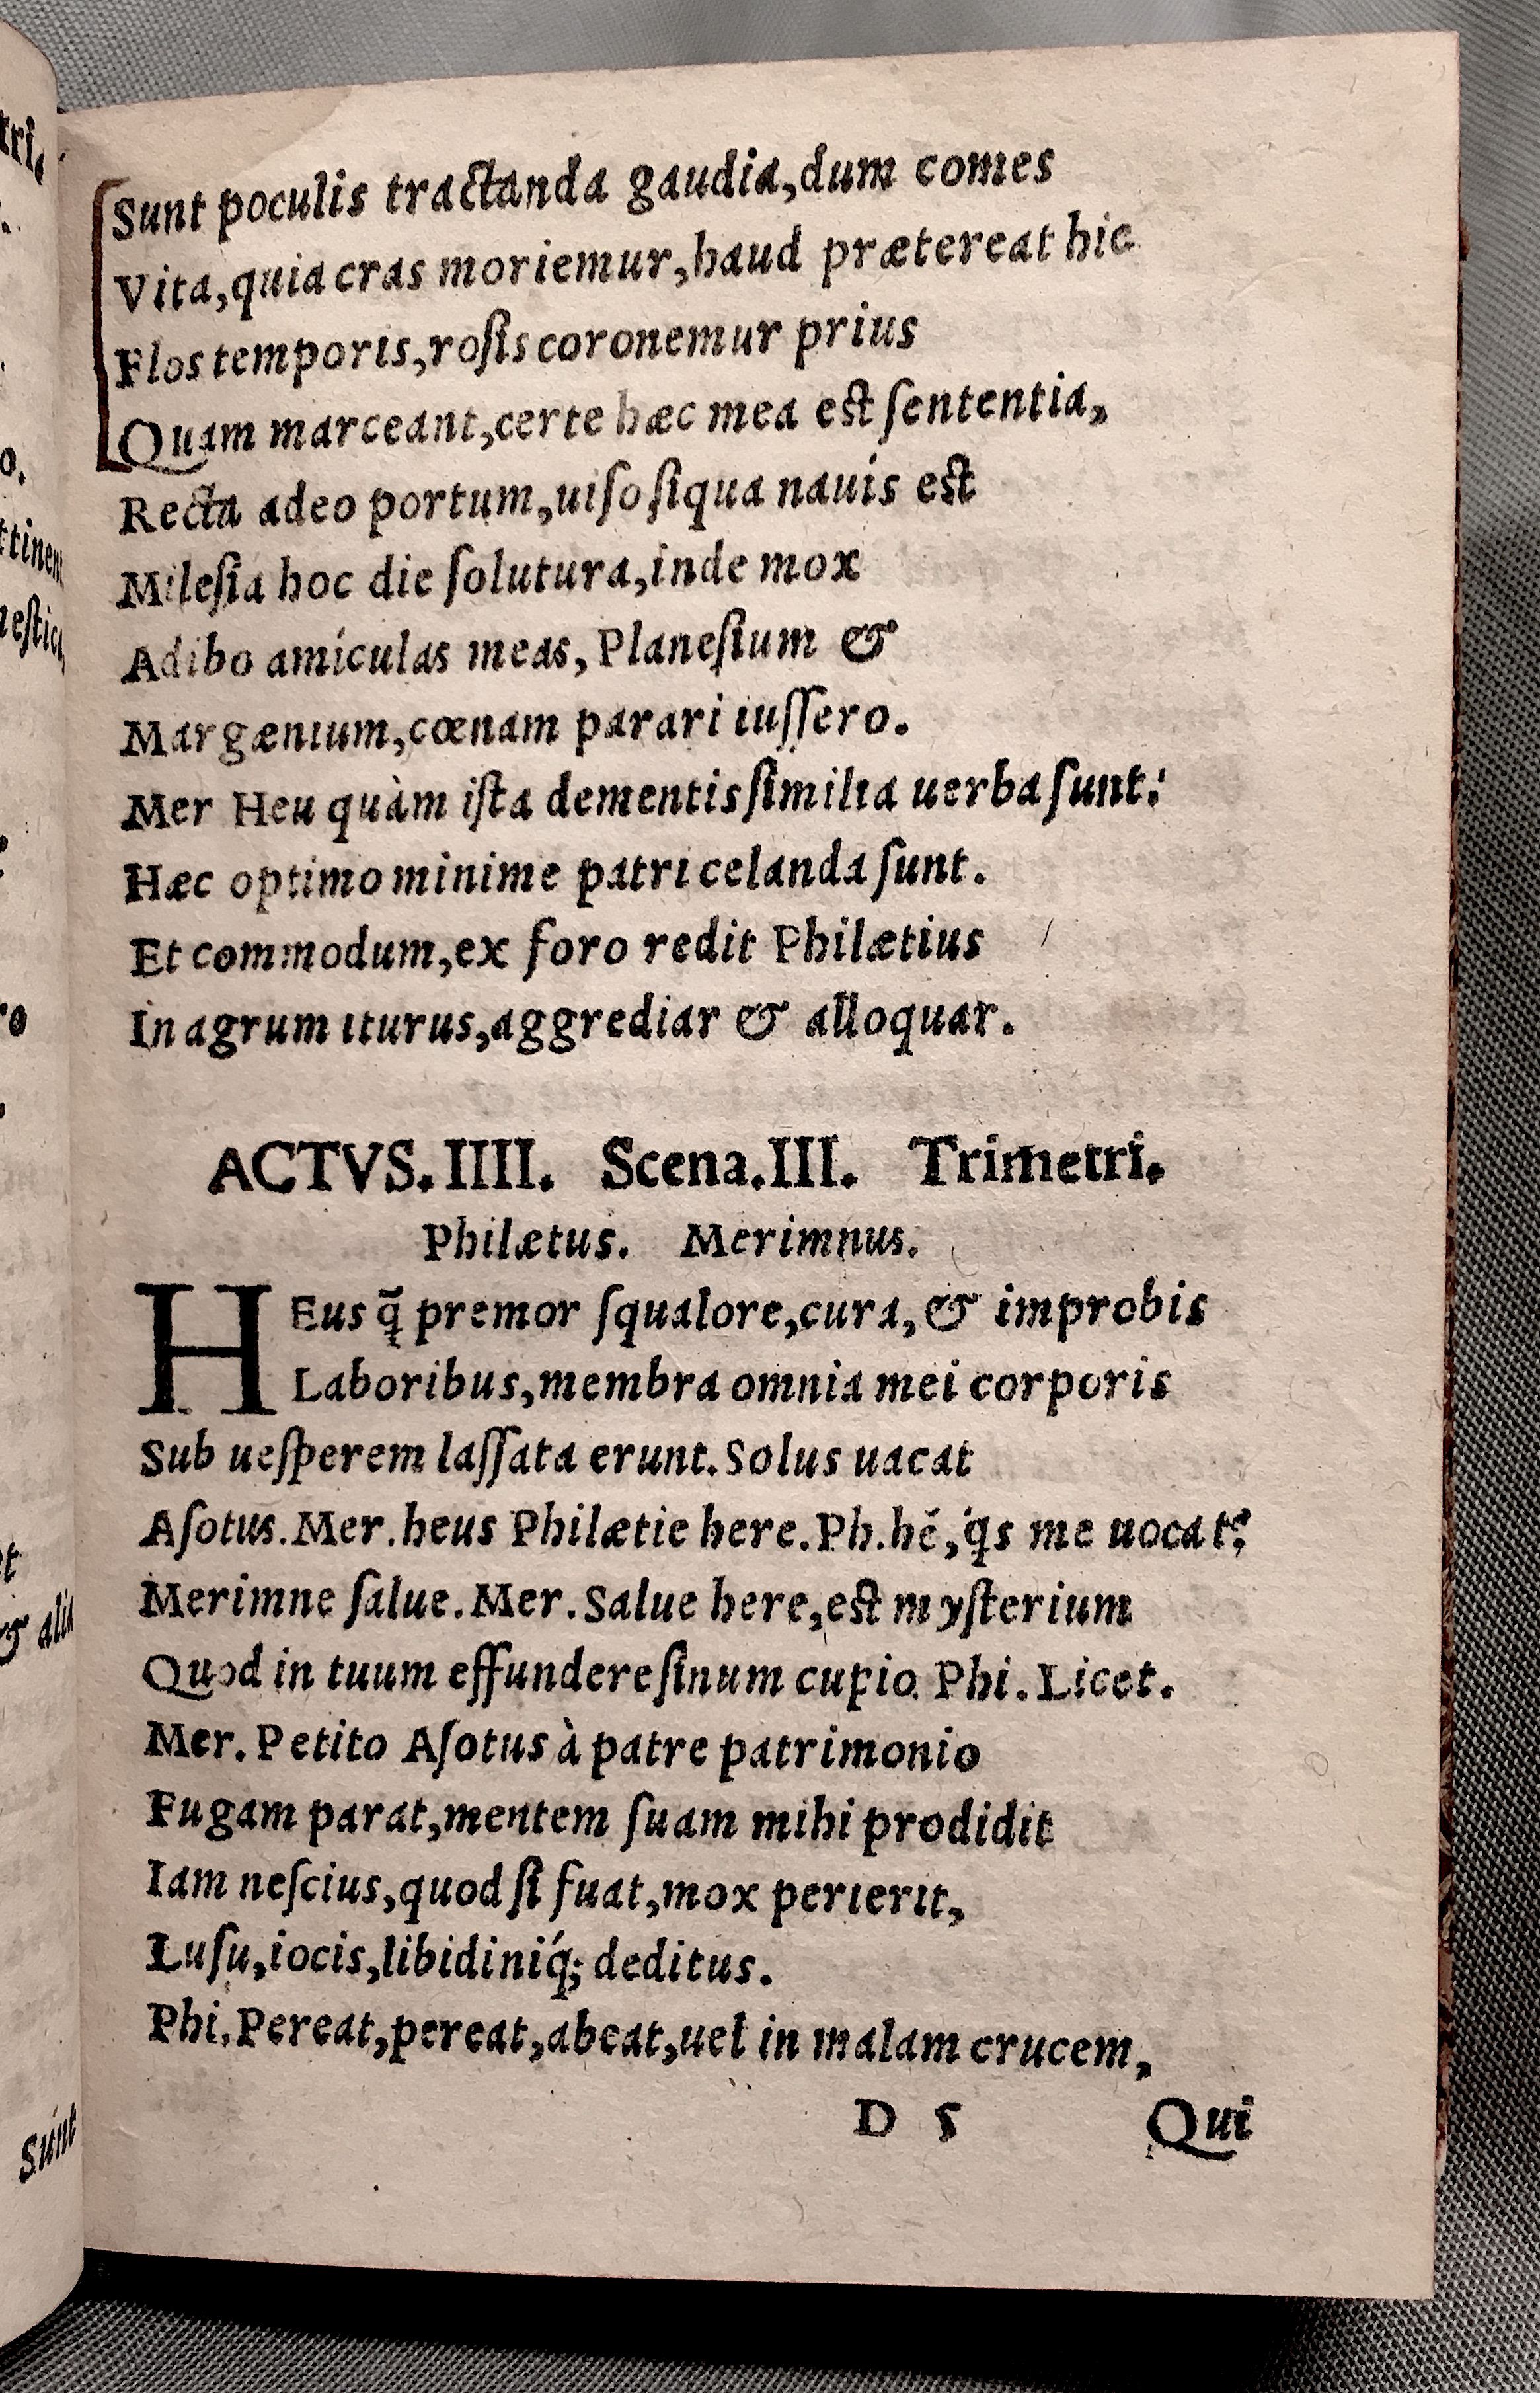 Sunt poculis tractanda gaudia,dum comes
Vita,quia cras moriemur,haud prætereat hic
Flos temporis,roſis coronemur prius
Quam marceant,certe hæc mea eſt ſententia,
Recta adeo portum,uiſo ſiqua nauis eſt
Mileſia hoc die ſolutura,inde mox
Adibo amiculas meas, Planeſium &
Margænium,cœnam parari iuſſero.
Mer Heu quàm iſta dementis ſimilia uerba ſunt:
Hæc optimo minime patri celanda ſunt.
Et commodum,ex foro redit Philætius
In agrum iturus,aggrediar & alloquar.
ACTVS.IIII. Scena.III. Trimetri.
Philætus. Merimnus.
HEus q̃ premor ſqualore,cura,& improbis
Laboribus,membra omnia mei corporis
Sub ueſperem laſſata erunt.Solus uacat
Aſotus.Mer.heus Philætie here.Ph.hẽ,q̇s me uocat?
Merimne ſalue.Mer.Salue here,eſt myſterium
Quod in tuum effundere ſinum cupio. Phi.Licet.
Mer. Petito Aſotus à patre patrimonio
Fugam parat,mentem ſuam mihi prodidit
Iam neſcius,quod ſi fuat,mox perierit,
Luſu,iocis,libidiniq́; deditus.
Phi.Pereat,pereat,abeat,uel in malam crucem,
D 5 Qui